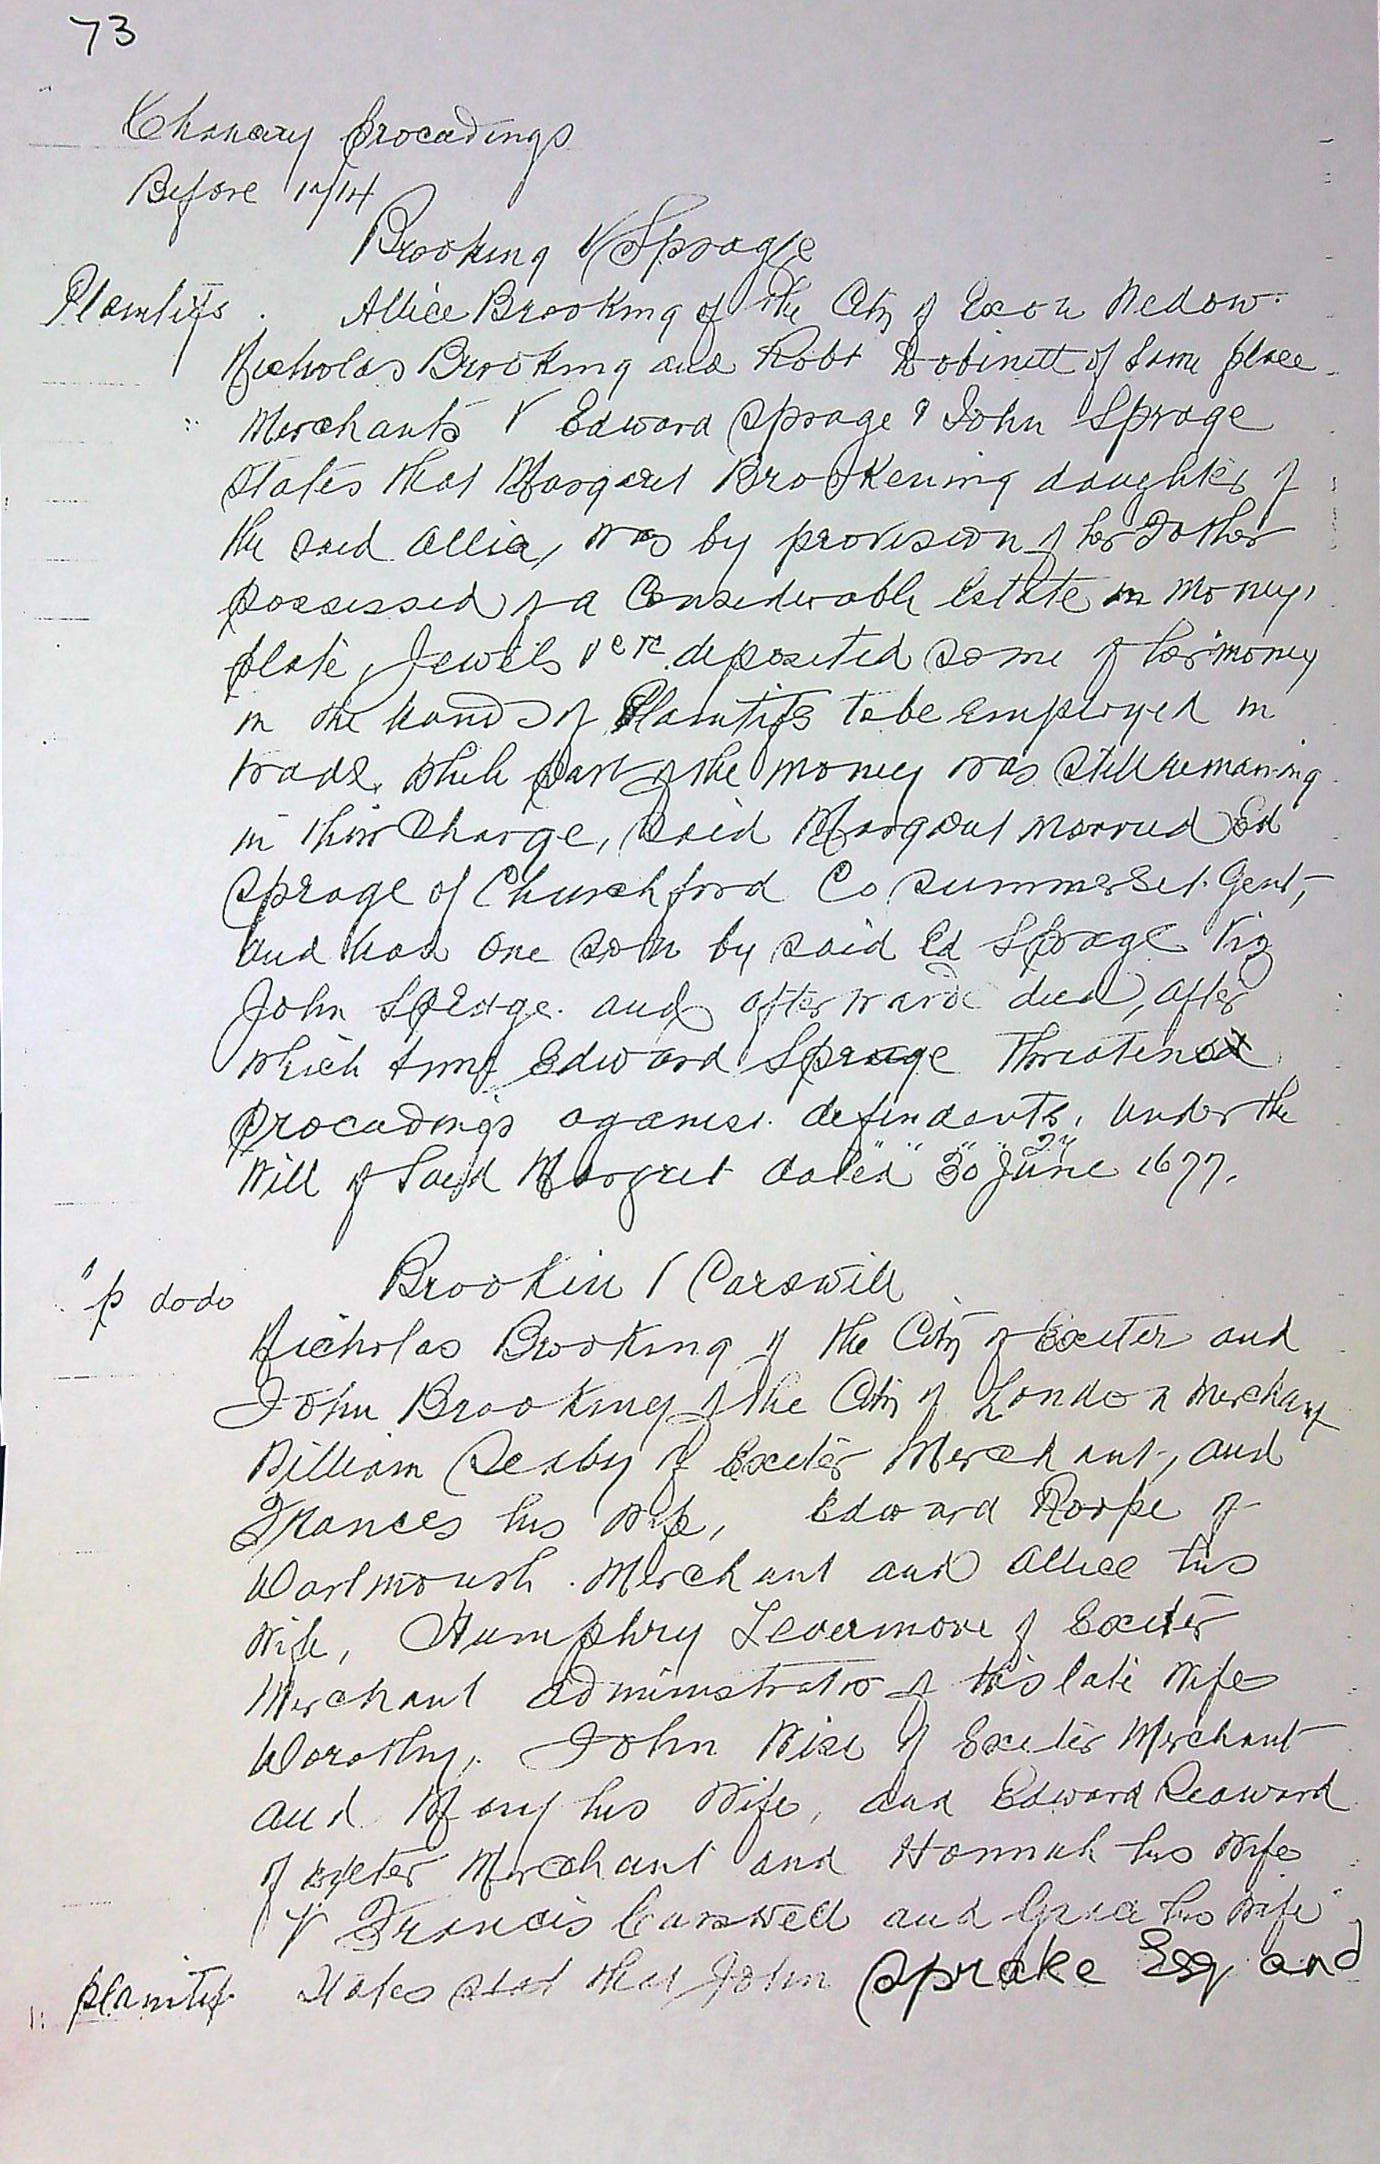 73
Chancery procadings
Before 1714
Brooking V Sprage
Plantifs. Allice Brooking of the City of Exon Wedow.
Nicholas Brooking and Robt Dobinett of same place
Merchants V Edward Sprage & John Sprage
states that Margaret Brookening daughter of
the said Allice, was by provision of her Father
possessed of a Considerable Estate in money,
plate, Jewels &c deposited some of her money
in the hands of Plantifs to be employed in
trade, while part of the money was still remaining
in thier Charge, said Margaret married Ed
Sprage of Churchford Co Summerset. Gent,
and had one son by said Ed Sprage Viz
John Sprage. and afterwards died, after
which time Edward Sprage Threatened
procadings against defendants, under the
Will of Said Margret dated 30 June 1677.
" p dodo Brookin V Carswill
Nicholas Brooking of the City of Exeter and
John Brooking of the City of London Merchant
William Seaby of Exeter Merchant, and
Frances his Wife, Edward Roope of
Dartmouth. Merchant and Allice his
Wife, Humphry Levermore of Exeter
Merchant administrator of his late Wife
Dorothy, John Wise of Exeter Merchant
and Mary his Wife, and Edward Seaward
of Exeter Merchant and Hannah his Wife
V Francis Carswell and Grace his Wife
plaintif States that John Sprake Esq and